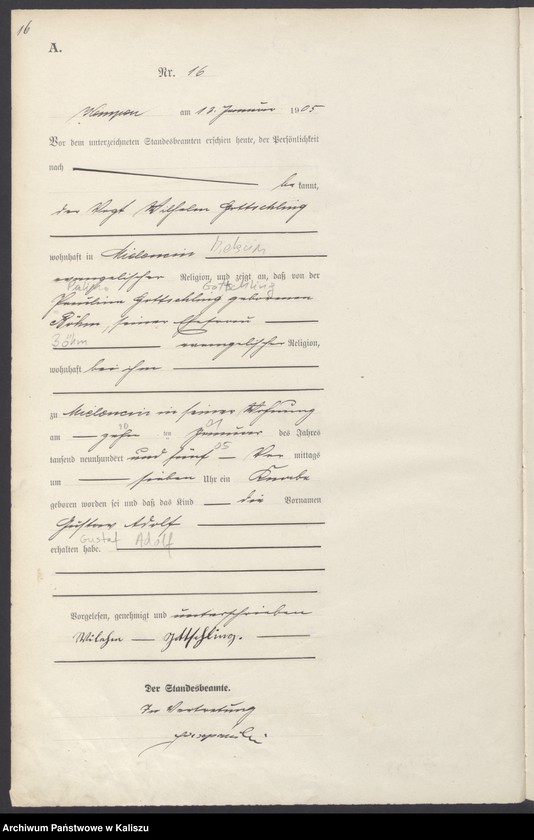 16
A.
Nr. 16
Kempen am 12. Januar 1905
Vor dem unterzeichneten Standesbeamten erschien heute, der Persönlichkeit
nach
be kannt,
der Vogt Wilhelm Gottschling
wohnhaft in
evangelischer Religion, und zeigt an, daß von der
Gottschling
Pauline Gottschling geborenen
Böhm, seiner Ehefrau
Böhm evangelischer Religion,
wohnhaft bei ihm
zu in seiner Wohnung
10 01
am zehn ten Januar des Jahres
tausend neunhundert und fünf Vor mittags
05
um sieben Uhr ein Knabe
geboren worden sei und daß das Kind die Vornamen
Gustav Adolf
Gustaf Adolf
erhalten habe.
Vorgelesen, genehmigt und unterschrieben
Wilhelm Gottschling.
Der Standesbeamte.
In Vertretung
Archiwum Państwowe w Kaliszu